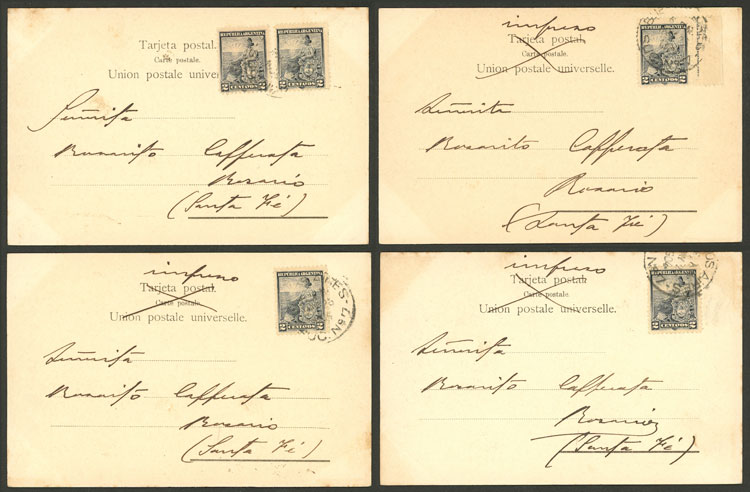 Tarjeta postal.
Carte postale.
Union postale univers
REPUBLICA ARGENTINA
2 CENTAVOS 2
REPUBLICA ARGENTINA
2 CENTAVOS 2
Señorita
Rosarito Cafferata
Rosario
(Santa Fé)
impreso
Tarjeta postal.
Carte postale.
Union postale universelle.
REPUBLICA ARGENTINA
2 CENTAVOS 2
Señorita
Rosarito Cafferata
Rosario
(Santa Fé)
impreso
Tarjeta postal.
Carte postale.
Union postale universelle.
REPUBLICA ARGENTINA
2 CENTAVOS 2
Señorita
Rosarito Cafferata
Rosario
(Santa Fé)
impreso
Tarjeta postal.
Carte postale.
Union postale universelle.
REPUBLICA ARGENTINA
2 CENTAVOS 2
Señorita
Rosarito Cafferata
Rosario
(Santa Fé)